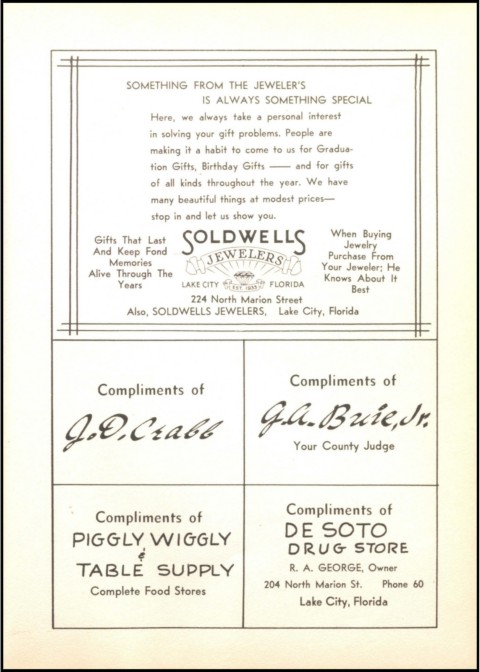 SOMETHING FROM THE JEWELER'S
IS ALWAYS SOMETHING SPECIAL
Here, we always take a personal interest
in solving your gift problems. People are
making it a habit to come to us for Gradua-
tion Gifts, Birthday Gifts —— and for gifts
of all kinds throughout the year. We have
many beautiful things at modest prices—
stop in and let us show you.
Gifts That Last
And Keep Fond
Memories
Alive Through The
Years
SOLDWELLS
JEWELERS
LAKE CITY FLORIDA
When Buying
Jewelry
Purchase From
Your Jeweler; He
Knows About It
Best
224 North Marion Street
Also, SOLDWELLS JEWELERS, Lake City, Florida
Compliments of
J.D. Crabb
Compliments of
G.A. Buie, Jr.
Your County Judge
Compliments of
PIGGLY WIGGLY
&
TABLE SUPPLY
Complete Food Stores
Compliments of
DE SOTO
DRUG STORE
R. A. GEORGE, Owner
204 North Marion St. Phone 60
Lake City, Florida